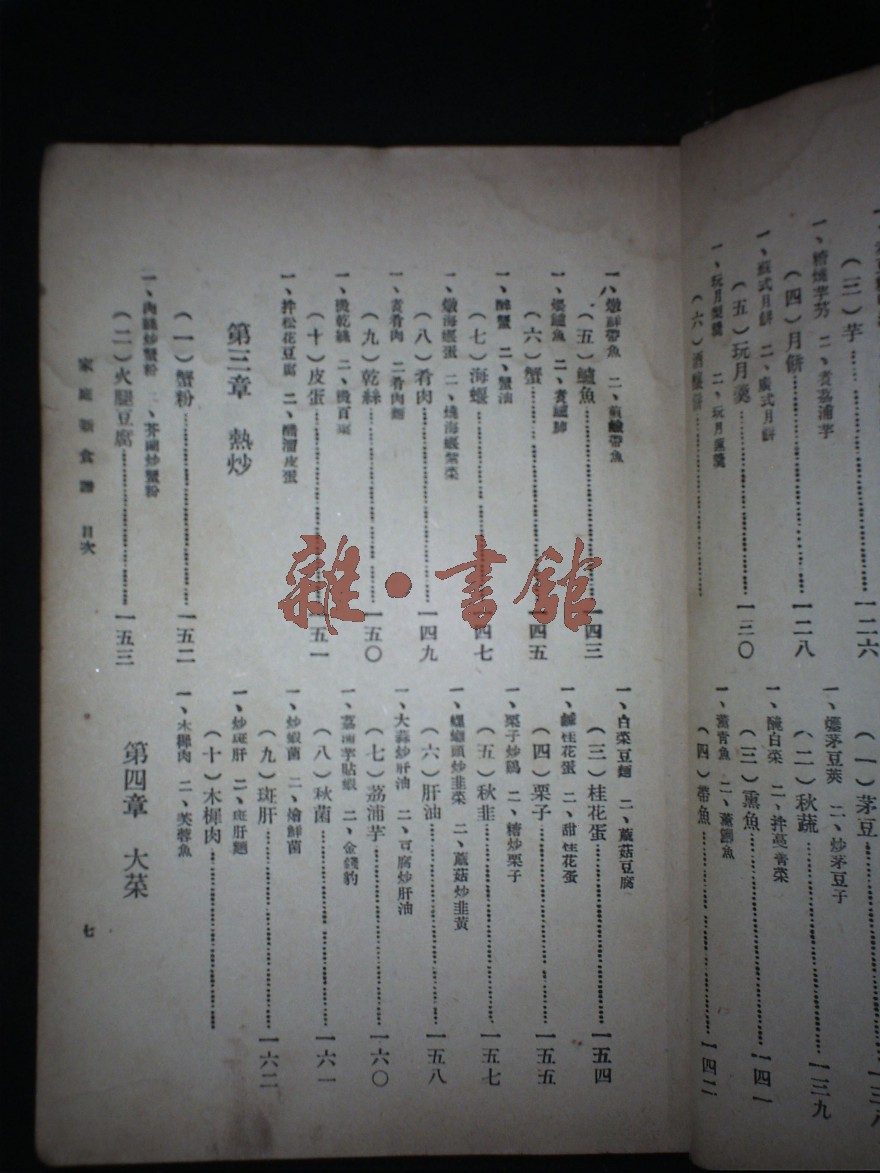 （三）芋………一二六
一、糟燻芋艿 二、煮荔浦芋
（四）月餅………一二八
一、蘇式月餅 二、廣式月餅
（五）玩月羹………一三〇
（六）酒釀餅………
（一）茅豆………一三八
一、燻茅豆莢 二、炒茅豆子
（二）秋蔬………一三九
一、醃白菜 二、拌蔓青菜
（三）熏魚………一四一
一、薰青魚 二、薰鯿魚
（四）帶魚………一四二
一、燉鮮帶魚 二、煎鹹帶魚
（五）鱸魚………一四三
一、爆鱸魚 二、煮鱸肺
（六）蟹………一四五
一、醉蟹 二、蟹油
（七）海蝘………一四七
一、燉海蝘蛋 二、燒海蝘紫菜
（八）肴肉………一四九
一、煮肴肉 二、肴肉麵
（九）乾絲………一五〇
一、燙乾絲 二、燙百頁
（十）皮蛋………一五一
一、拌松花豆腐 二、醋溜皮蛋
第三章 熱炒
（一）蟹粉………一五二
一、肉絲炒蟹粉 二、芥蘭炒蟹粉
（二）火腿豆腐………一五三
一、白菜豆麵 二、蘑菇豆腐
（三）桂花蛋………一五四
一、鹹桂花蛋 二、甜桂花蛋
（四）栗子………一五五
一、栗子炒鷄 二、糟炒栗子
（五）秋韭………一五七
一、螺螄頭炒韭菜 二、蘑菇炒韭黃
（六）肝油………一五八
一、大蒜炒肝油 二、豆腐炒肝油
（七）荔浦芋………一六〇
一、荔浦芋貼蝦 二、金錢豹
（八）秋菌………一六一
一、炒蝦菌 二、燴鮮菌
（九）斑肝………一六二
一、炒斑肝 二、斑肝麵
（十）木樨肉………
一、木樨肉 二、芙蓉魚
第四章 大菜
家庭新食譜 目次
七
雜·書館